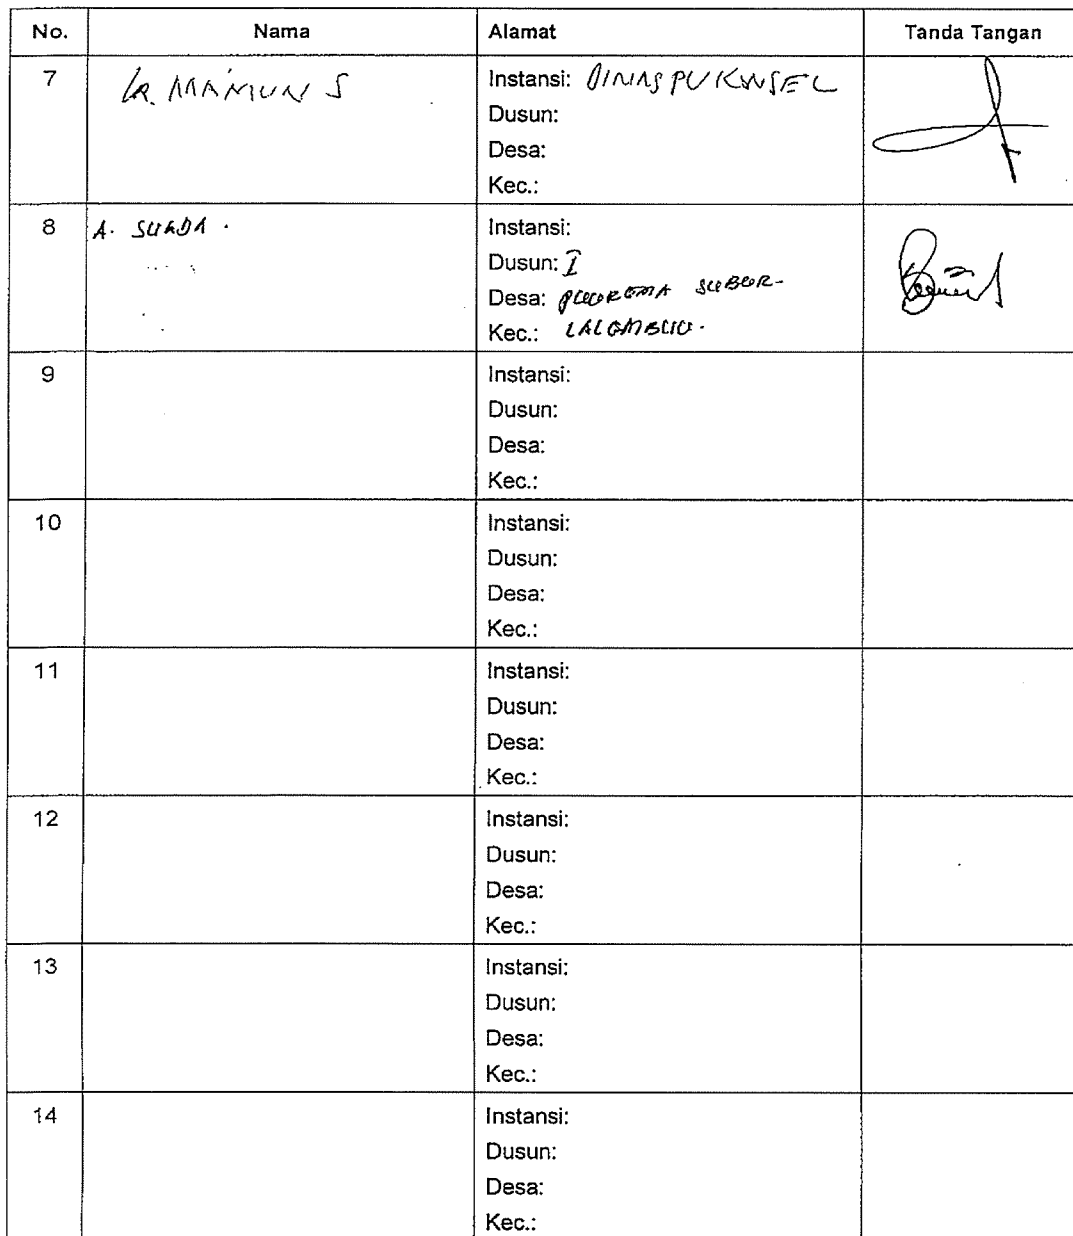 No. Nama Alamat Tanda Tangan
7 Ir. MA'MUN S Instansi: DINAS PU KONSEL
Dusun:
Desa:
Kec.:
8 A. SUADA. Instansi:
Dusun: I
Desa: SUBUR-
Kec.:
9 Instansi:
Dusun:
Desa:
Kec.:
10 Instansi:
Dusun:
Desa:
Kec.:
11 Instansi:
Dusun:
Desa:
Kec.:
12 Instansi:
Dusun:
Desa:
Kec.:
13 Instansi:
Dusun:
Desa:
Kec.:
14 Instansi:
Dusun:
Desa:
Kec.: